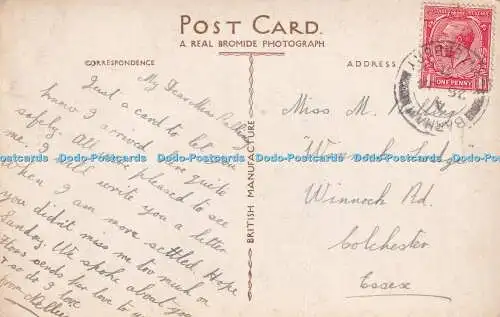 POST CARD.
A REAL BROMIDE PHOTOGRAPH
CORRESPONDENCE
ADDRESS
BRITISH MANUFACTURE
ONE PENNY
My Dear Miss
Just a card to let you
know I arrived here quite
safely. All were pleased to see
me. I will write you a letter
when I am more settled. Hope
you didn't miss me too much on
Sunday. We spoke about you
sends her love to you
& so do I love
from Nellie
Miss M.
Winnock Rd.
Colchester
Essex
Dodo-Postcards.com Dodo-Postcards.com Dodo-Postcards.com Dodo-Postcards.com Dodo-Postcards.com